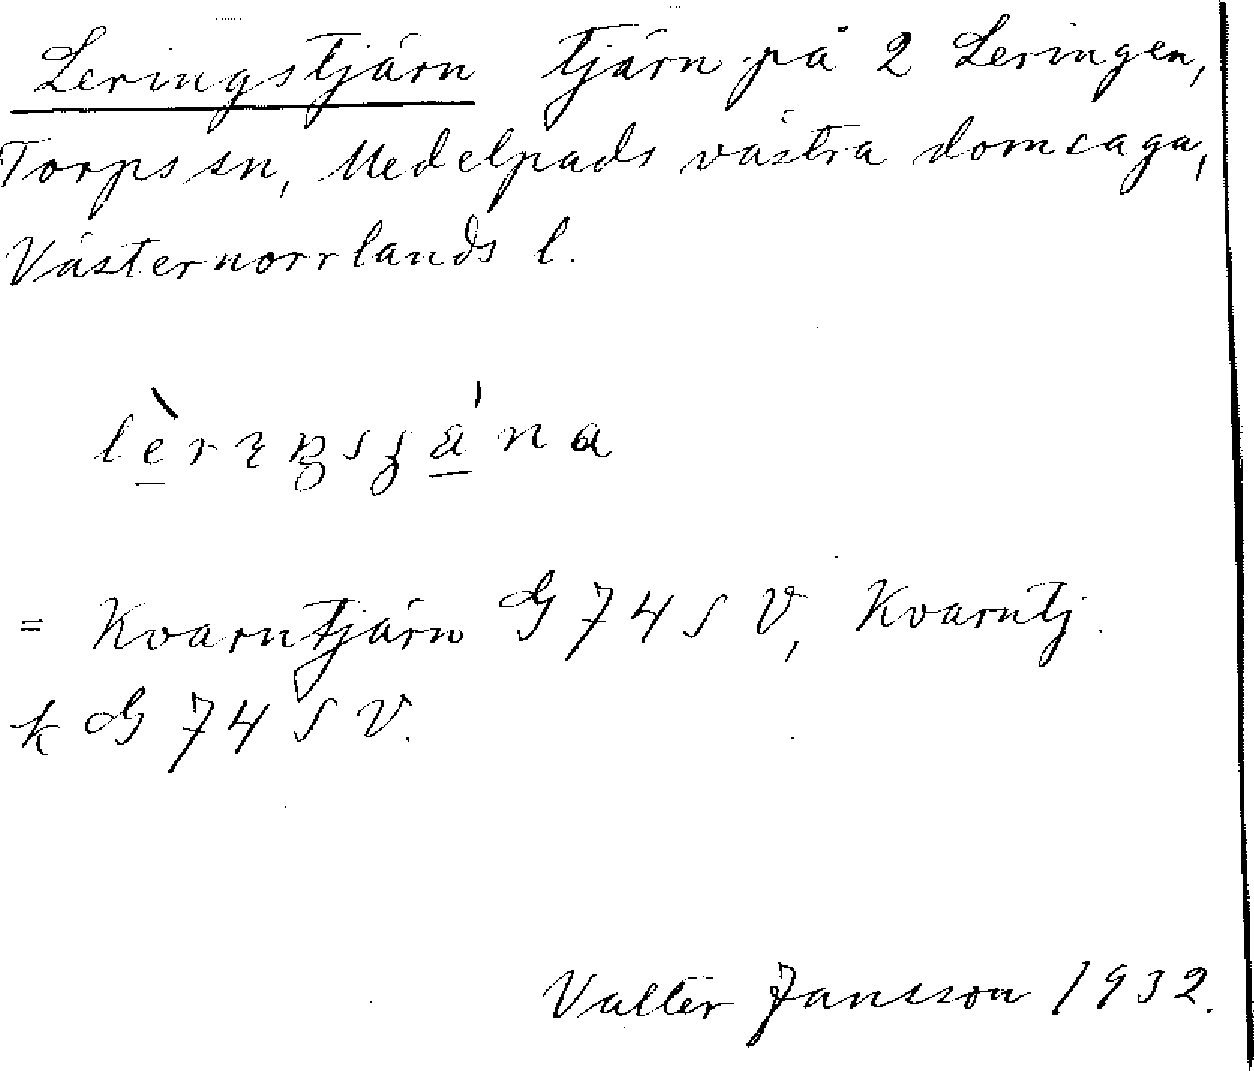 Leringstjärn tjärn på 2 Leringen,
Torps sn, Medelpads västra domsaga,
Västernorrlands l.
= Kvarntjärn G 74 S V, Kvarntj.
k G 74 S V.
Valter Jansson 1932.